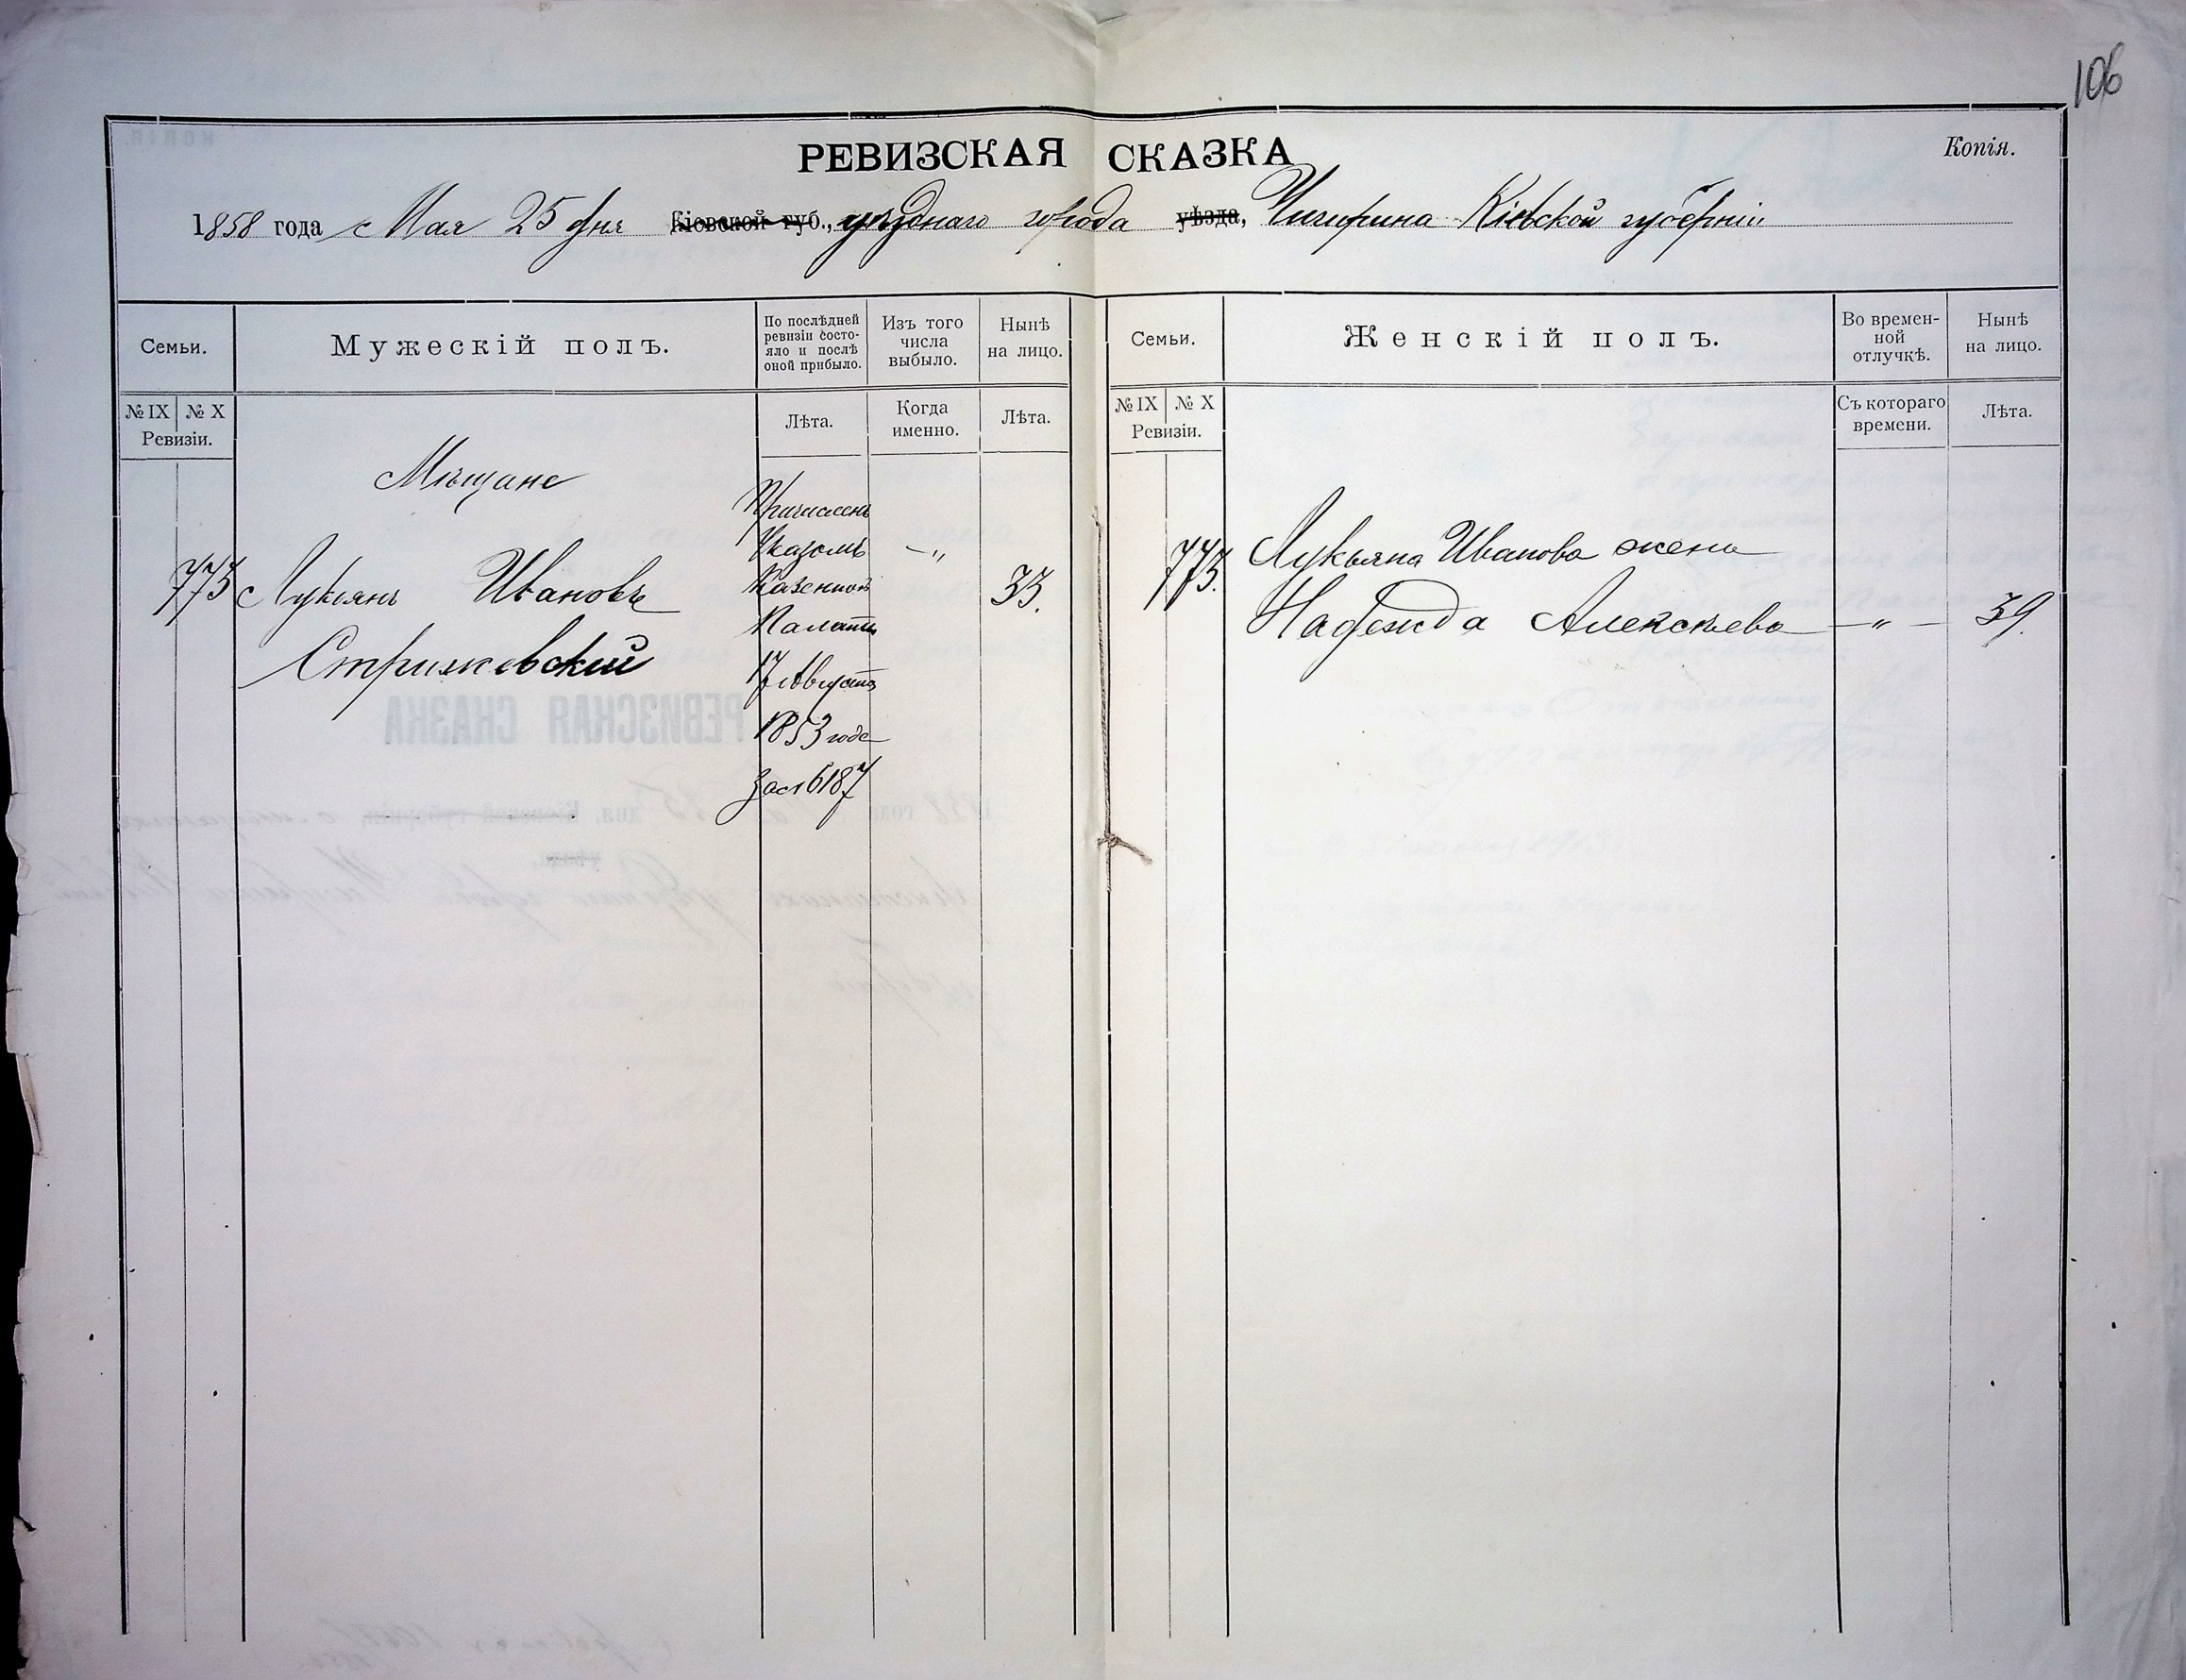 106
РЕВИЗСКАЯ СКАЗКА
Копія.
1858 года Мая 25 дня Кіевской губ., уѣзднаго города уѣзда, Чигирина Кіевской губерніи
Семьи.
Мужескій полъ.
По послѣдней
ревизіи состо-
яло и послѣ
оной прибыло.
Изъ того
числа
выбыло.
Нынѣ
на лицо.
Семьи.
Женскій полъ.
Во времен-
ной
отлучкѣ.
Нынѣ
на лицо.
№ IX № X
Ревизіи.
Лѣта.
Когда
именно.
Лѣта.
№ IX № X
Ревизіи.
Съ котораго
времени.
Лѣта.
Мѣщане
773 Лукіянъ Ивановъ
Стрижевский
Причисленъ
Указомъ
Казенной
Палаты
17 Августа
1853 года
за № 6187
—„
33.
773. Лукьяна Иванова жена
Надежда Алексѣева — „ — 39.
РЕВИЗСКАЯ СКАЗКА